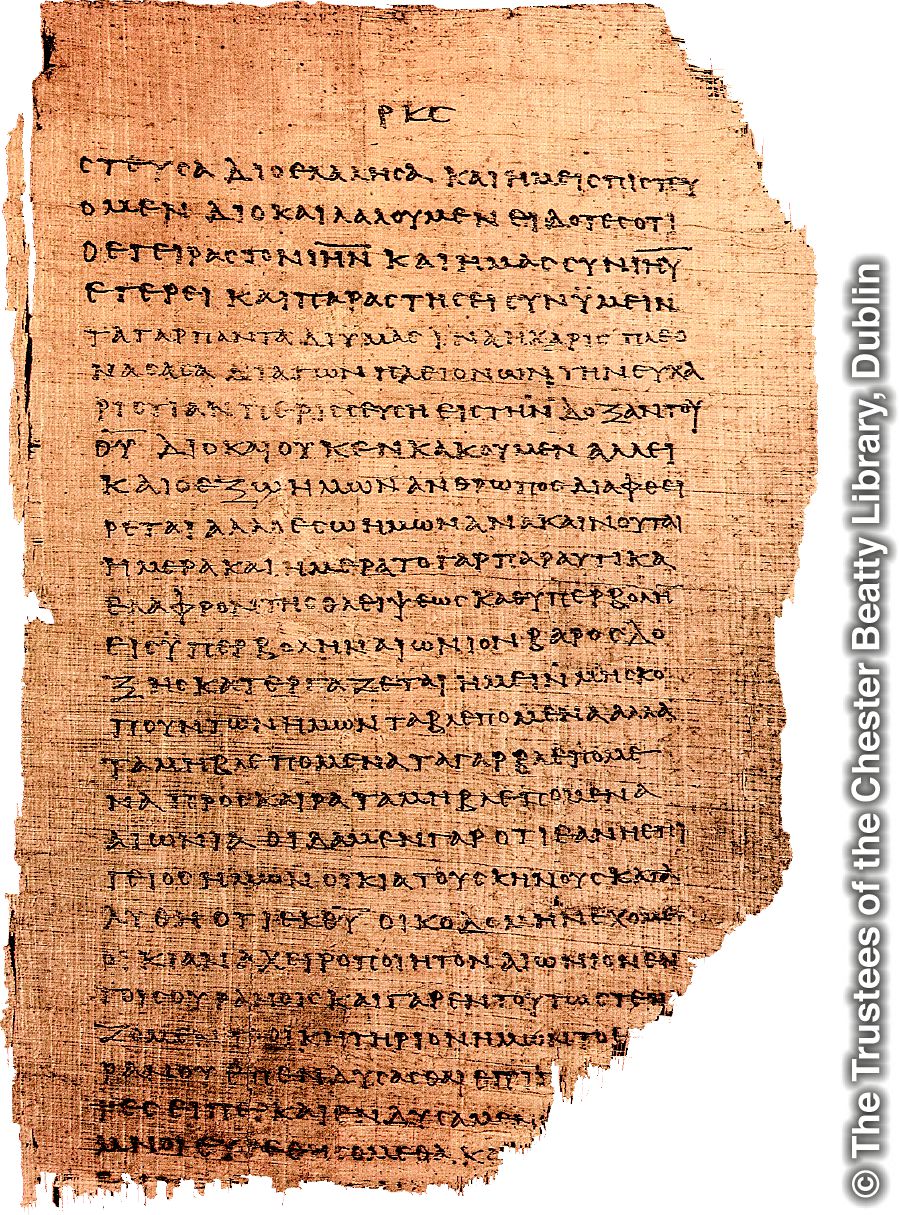 ΡΚϚ
ϹΤΕΥϹΑ ΔΙΟ ΕΛΑΛΗϹΑ ΚΑΙ ΗΜΕΙϹ ΠΙϹΤΕΥ
ΟΜΕΝ ΔΙΟ ΚΑΙ ΛΑΛΟΥΜΕΝ ΕΙΔΟΤΕϹ ΟΤΙ
Ο ΕΓΕΙΡΑϹ ΤΟΝ ΙΗΝ ΚΑΙ ΗΜΑϹ ϹΥΝ ΙΗΥ
ΕΓΕΡΕΙ ΚΑΙ ΠΑΡΑϹΤΗϹΕΙ ϹΥΝ ΫΜΕΙΝ
ΤΑ ΓΑΡ ΠΑΝΤΑ ΔΙ ΥΜΑϹ ΙΝΑ Η ΧΑΡΙϹ ΠΛΕΟ
ΝΑϹΑϹΑ ΔΙΑ ΤΩΝ ΠΛΕΙΟΝΩΝ ΤΗΝ ΕΥΧΑ
ΡΙϹΤΙΑΝ ΠΕΡΙϹϹΕΥϹΗ ΕΙϹ ΤΗΝ ΔΟΞΑΝ ΤΟΥ
ΘΥ ΔΙΟ ΚΑΙ ΟΥΚ ΕΝΚΑΚΟΥΜΕΝ ΑΛΛ ΕΙ
ΚΑΙ Ο ΕΞΩ ΗΜΩΝ ΑΝΘΡΩΠΟϹ ΔΙΑΦΘΕΙ
ΡΕΤΑΙ ΑΛΛ Ο ΕϹΩ ΗΜΩΝ ΑΝΑΚΑΙΝΟΥΤΑΙ
ΗΜΕΡΑ ΚΑΙ ΗΜΕΡΑ ΤΟ ΓΑΡ ΠΑΡΑΥΤΙΚΑ
ΕΛΑΦΡΟΝ ΤΗϹ ΘΛΕΙΨΕΩϹ ΚΑΘ ΥΠΕΡΒΟΛΗ
ΕΙϹ ΫΠΕΡΒΟΛΗΝ ΑΙΩΝΙΟΝ ΒΑΡΟϹ ΔΟ
ΞΗϹ ΚΑΤΕΡΓΑΖΕΤΑΙ ΗΜΕΙΝ ΜΗ ϹΚΟ
ΠΟΥΝΤΩΝ ΗΜΩΝ ΤΑ ΒΛΕΠΟΜΕΝΑ ΑΛΛΑ
ΤΑ ΜΗ ΒΛΕΠΟΜΕΝΑ ΤΑ ΓΑΡ ΒΛΕΠΟΜΕ
ΝΑ ΠΡΟϹΚΑΙΡΑ ΤΑ ΜΗ ΒΛΕΠΟΜΕΝΑ
ΑΙΩΝΙΑ ΟΙΔΑΜΕΝ ΓΑΡ ΟΤΙ ΕΑΝ Η ΕΠΙ
ΓΕΙΟϹ ΗΜΩΝ ΟΙΚΙΑ ΤΟΥ ϹΚΗΝΟΥϹ ΚΑΤΑ
ΛΥΘΗ ΟΤΙ ΕΚ ΘΥ ΟΙΚΟΔΟΜΗΝ ΕΧΟΜΕ
ΟΙΚΙΑΝ ΑΧΕΙΡΟΠΟΙΗΤΟΝ ΑΙΩΝΙΟΝ ΕΝ
ΤΟΙϹ ΟΥΡΑΝΟΙϹ ΚΑΙ ΓΑΡ ΕΝ ΤΟΥΤΩ ϹΤΕΝ
ΖΟΜΕΝ ΤΟ ΟΙΚΗΤΗΡΙΟΝ ΗΜΩΝ ΤΟ
ΡΑΝΟΥ ΕΠΕΝΔΥϹΑϹΘΑΙ ΕΠΙΠ
ΤΕϹ ΕΙΠΕΡ ΚΑΙ ΕΝΔΥϹΑΜΕΝ
ΜΝΟΙ ΕΥΡΕΘΗϹΟΜΕΘΑ Κ
© The Trustees of the Chester Beatty Library, Dublin